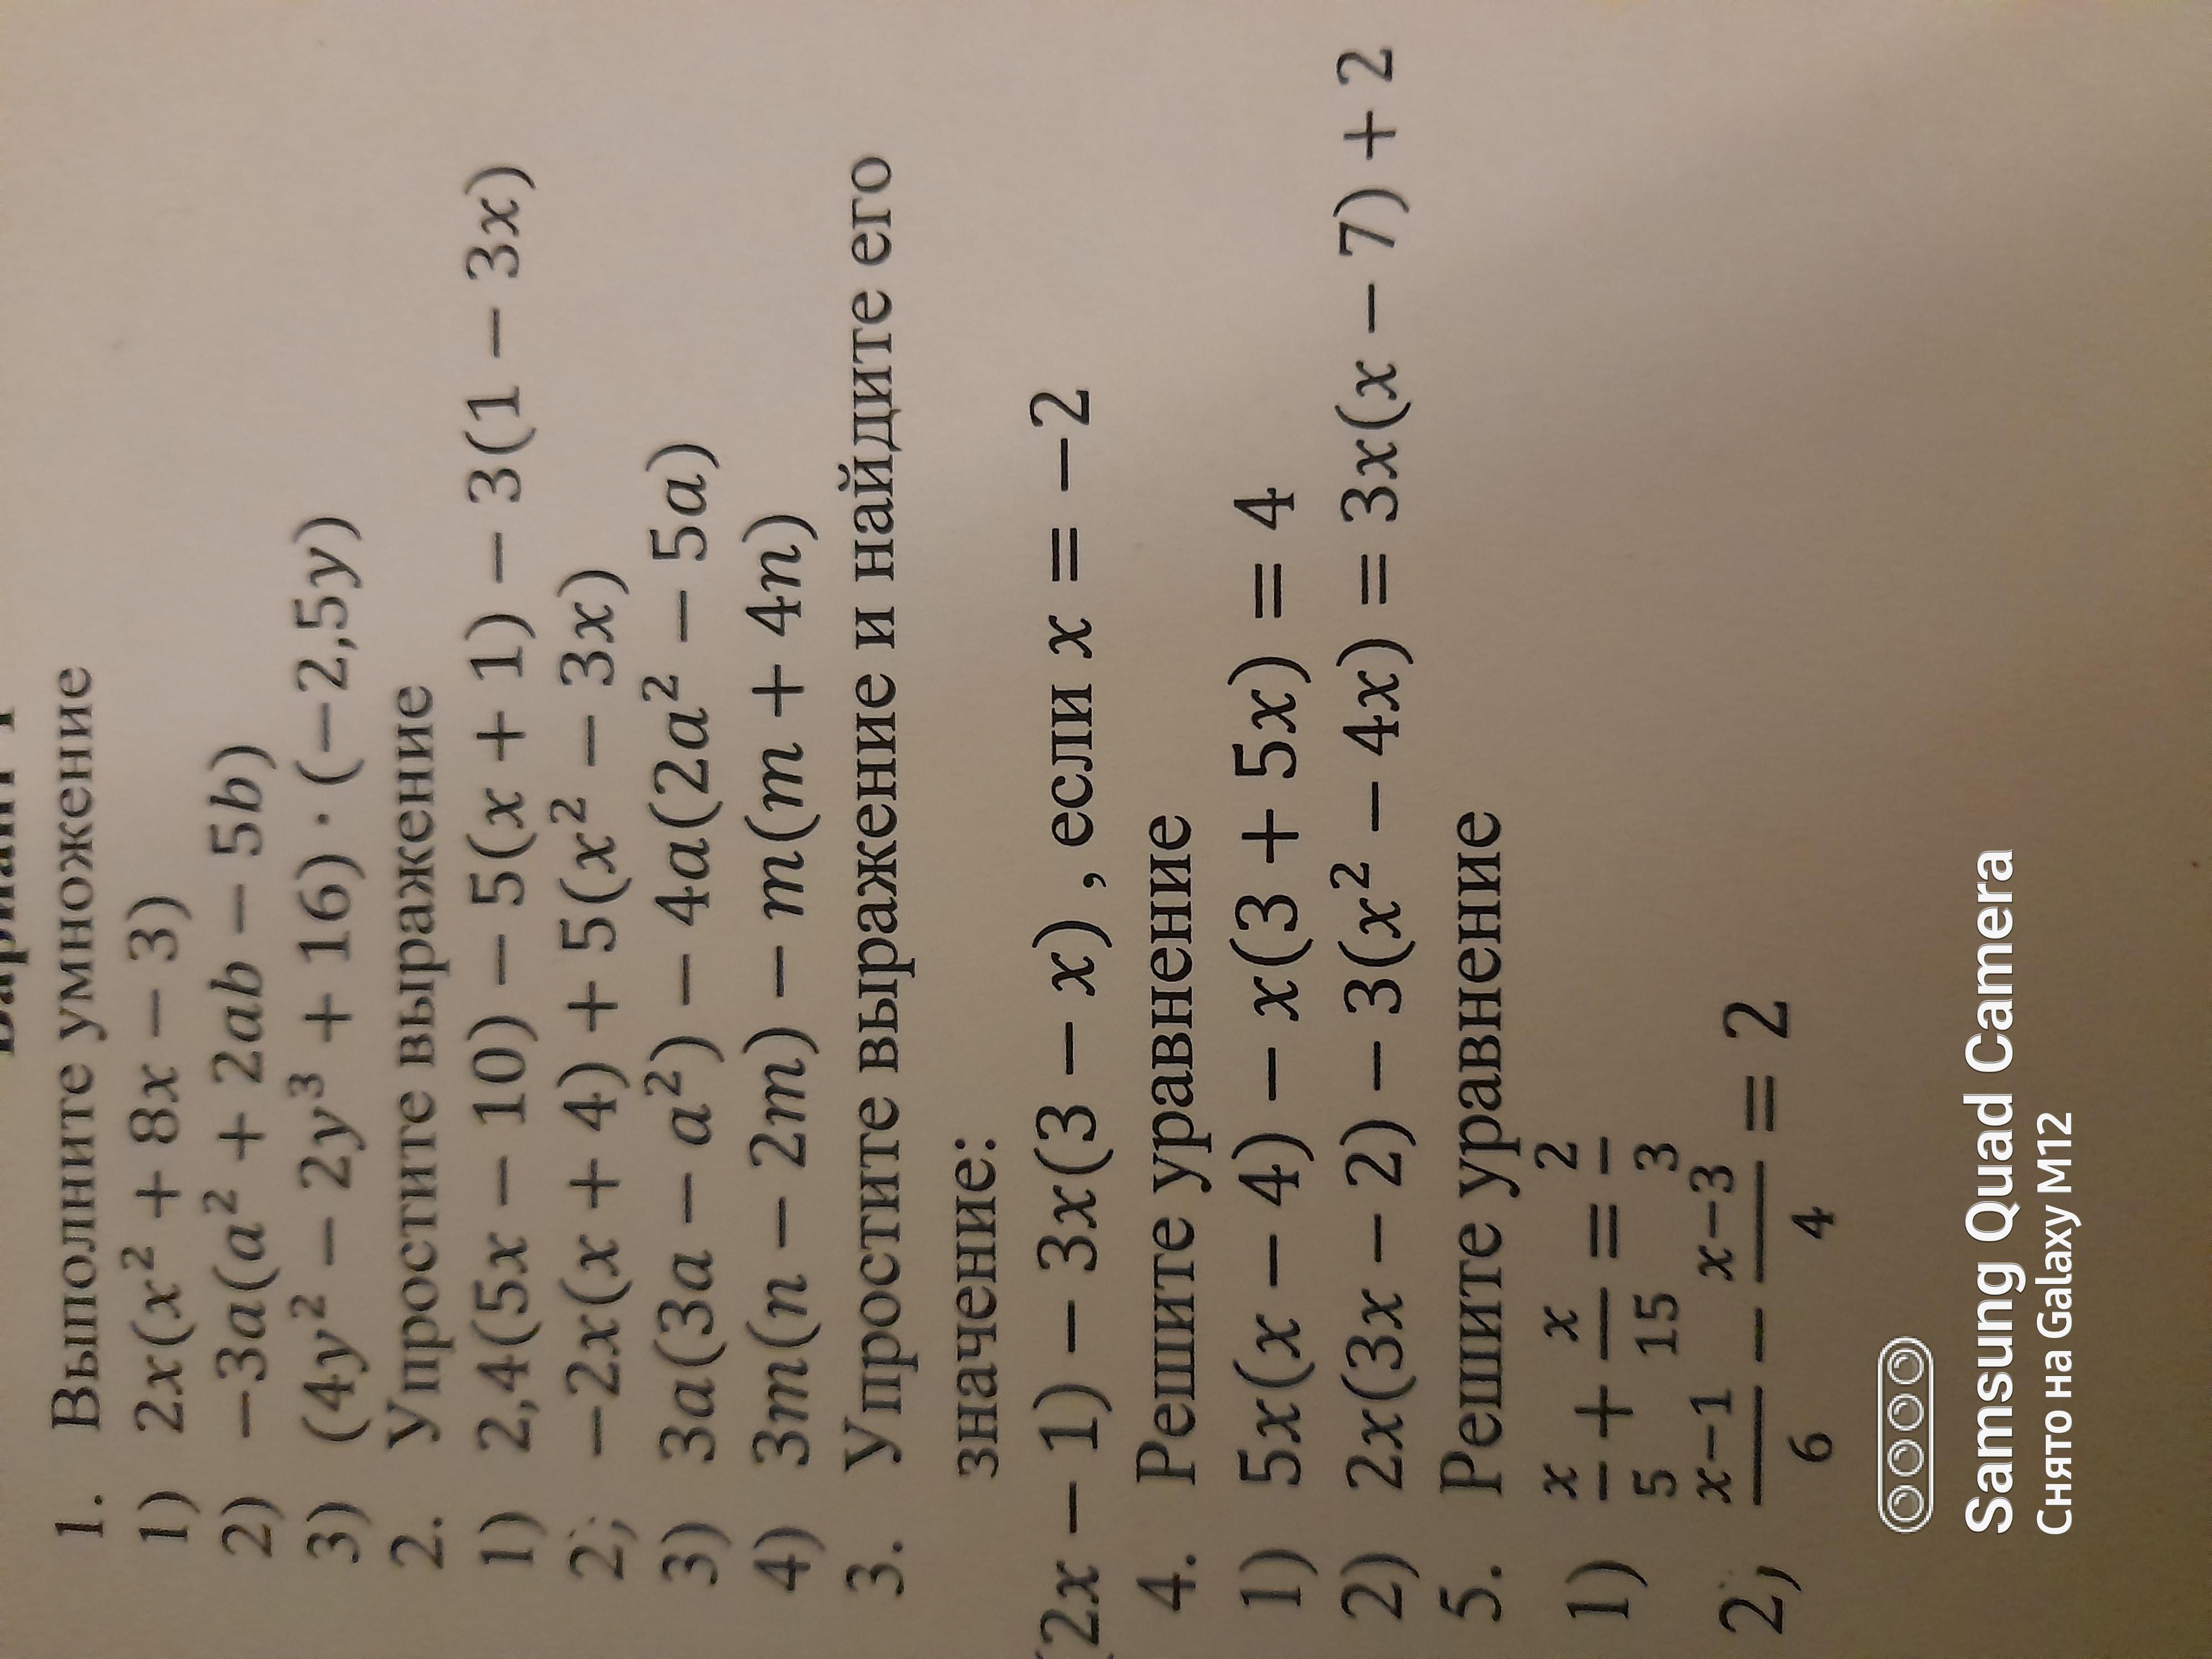 1. Выполните умножение
1) 2x(x² + 8x − 3)
2) −3a(a² + 2ab − 5b)
3) (4y² − 2y³ + 16) · (−2,5y)
2. Упростите выражение
1) 2,4(5x − 10) − 5(x + 1) − 3(1 − 3x)
2) −2x(x + 4) + 5(x² − 3x)
3) 3a(3a − a²) − 4a(2a² − 5a)
4) 3m(n − 2m) − m(m + 4n)
3. Упростите выражение и найдите его
значение:
(2x − 1) − 3x(3 − x) , если x = −2
4. Решите уравнение
1) 5x(x − 4) − x(3 + 5x) = 4
2) 2x(3x − 2) − 3(x² − 4x) = 3x(x − 7) + 2
5. Решите уравнение
1) x/5 + x/15 = 2/3
2) x−1/6 − x−3/4 = 2
Samsung Quad Camera
Снято на Galaxy M12